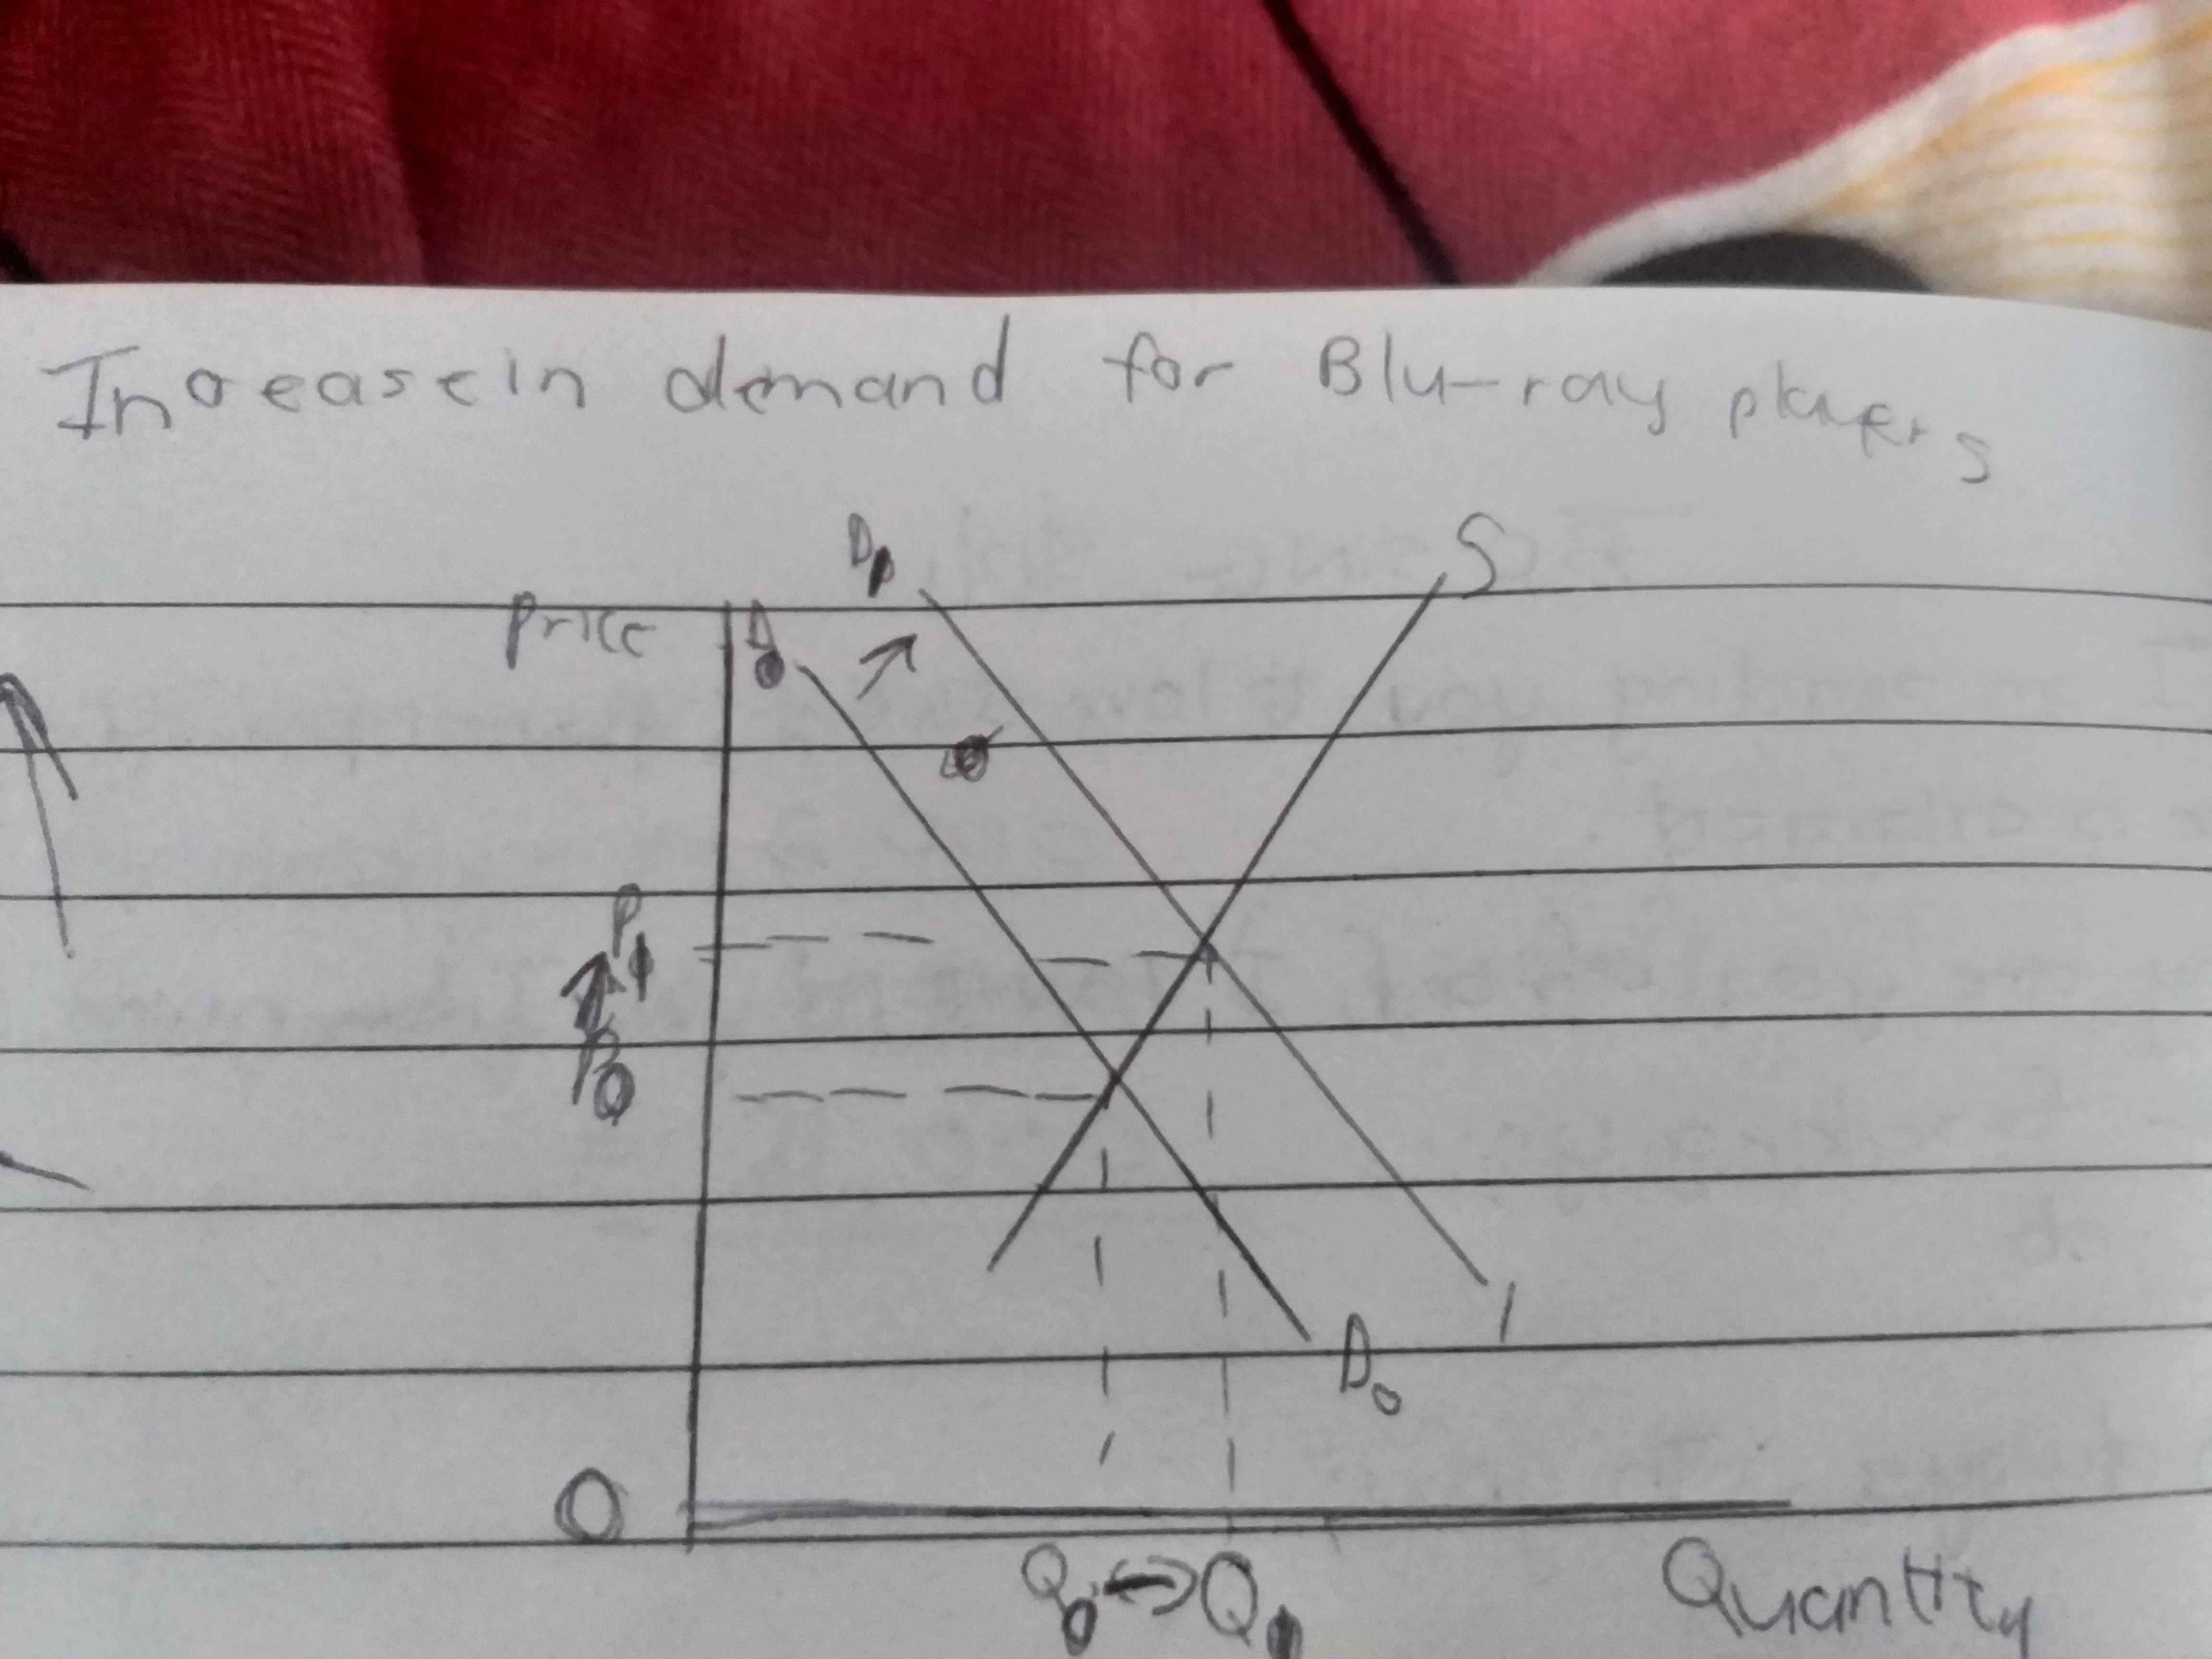 Increase in demand for Blu-ray players
D1 S
Price D0
P1
P0
1
D0
O
Q0 ↔ Q1 Quantity